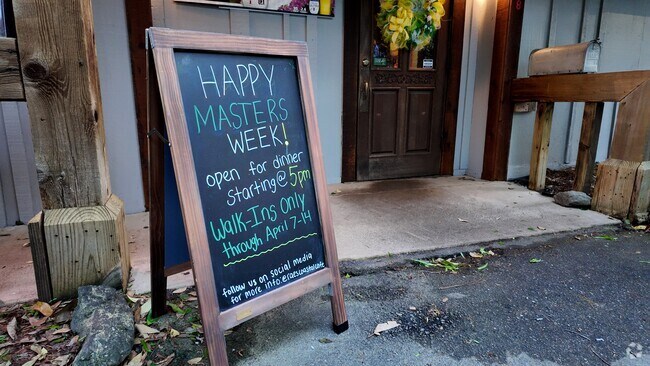 HAPPY
MASTERS
WEEK!
open for dinner
starting @ 5pm
Walk-Ins Only
through April 7-14
follow us on social media
for more info: